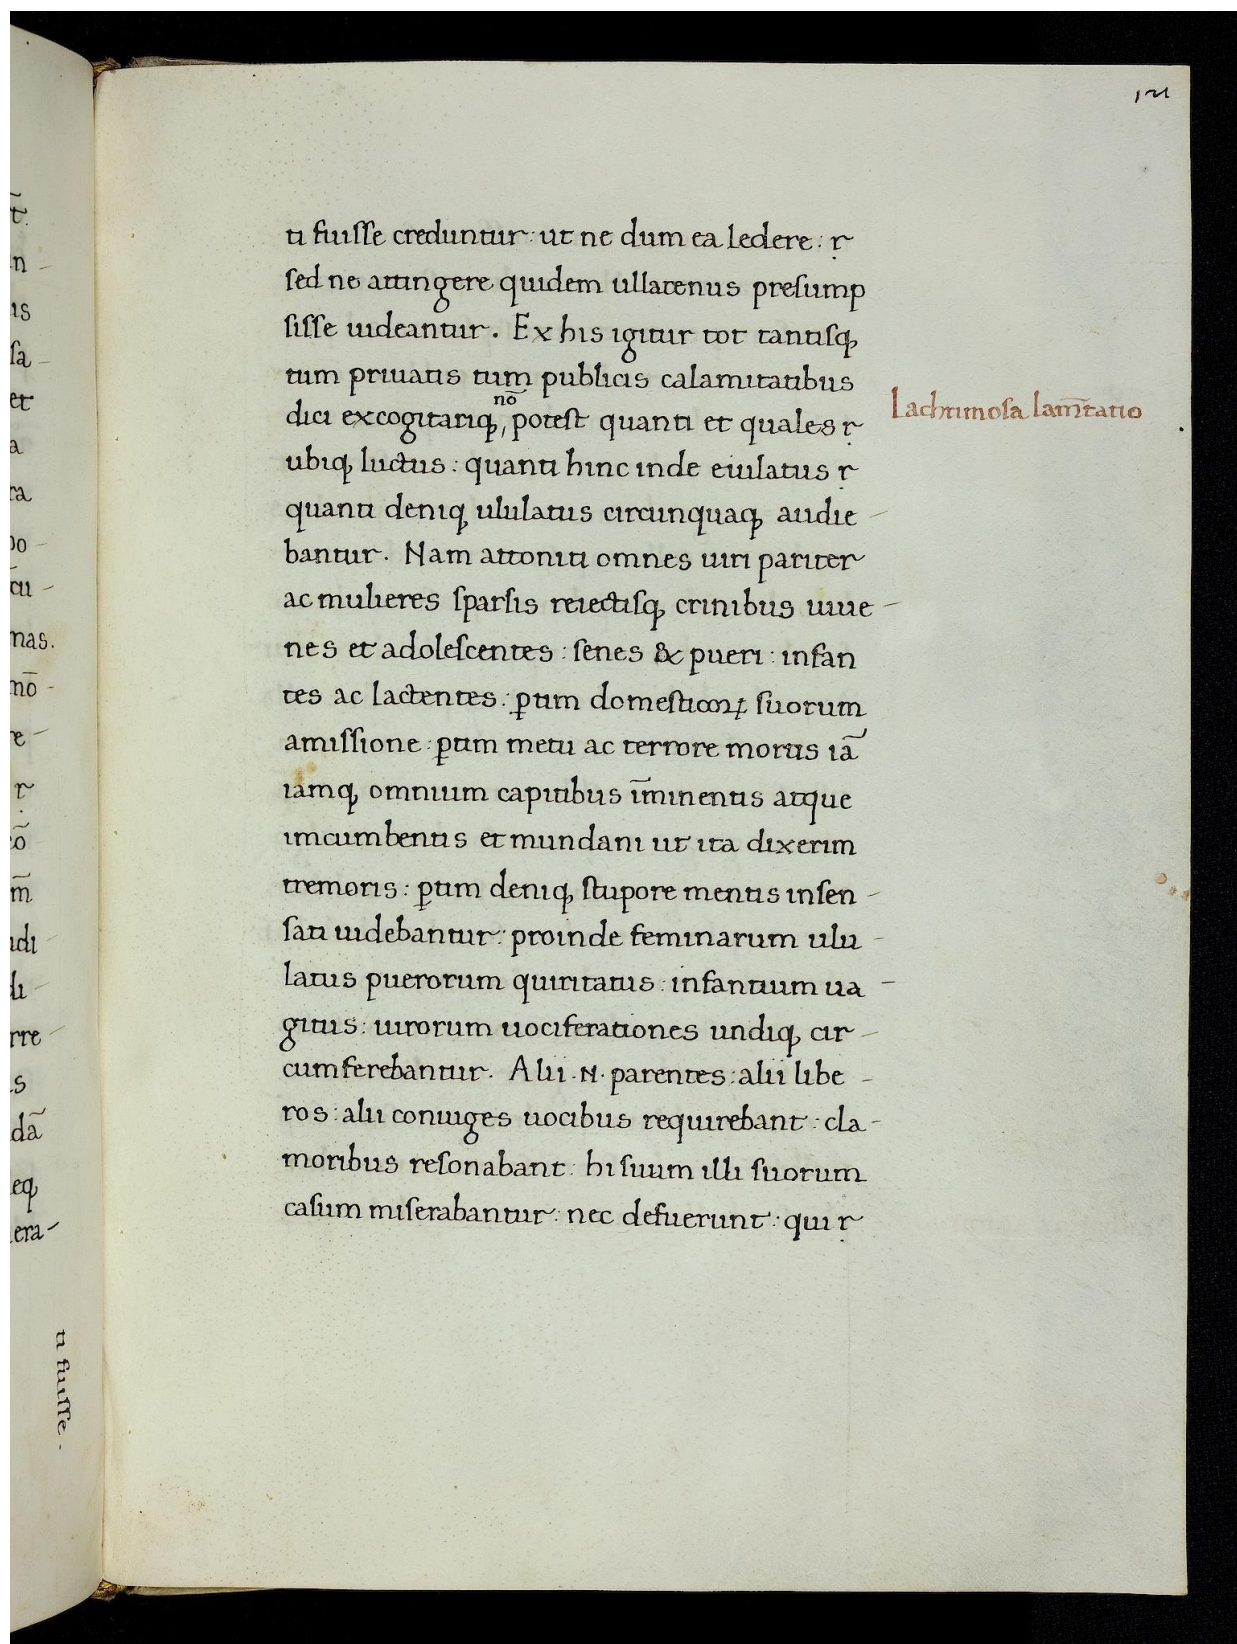 121
ti fuisse creduntur: ut ne dum ea ledere: r
sed ne attingere quidem ullatenus presump
sisse uideantur. Ex his igitur tot tantisq;
tum priuatis tum publicis calamitatibus
nō
dici excogitariq;, potest quanti et quales r
Lachrimosa lam̄tatio
ubiq; luctus: quanti hinc inde eiulatus r
quanti deniq; ululatus circunquaq; audie-
bantur. Nam attoniti omnes uiri pariter
ac mulieres sparsis reiectisq; crinibus iuue-
nes et adolescentes: senes & pueri: infan
tes ac lactentes: ꝑtim domesticoꝝ suorum
amissione: ꝑtim metu ac terrore mortis iā
iamq; omnium capitibus īminentis atque
imcumbentis et mundani ut ita dixerim
tremoris: ꝑtim deniq; stupore mentis insen-
sati uidebantur: proinde feminarum ulu-
latus puerorum quiritatus: infantium ua-
gitus: uirorum uociferationes undiq; cir-
cumferebantur. Alii .N. parentes: alii libe-
ros: alii coniuges uocibus requirebant: cla-
moribus resonabant: hi suum illi suorum
casum miserabantur: nec defuerunt: qui r
ti fuisse.